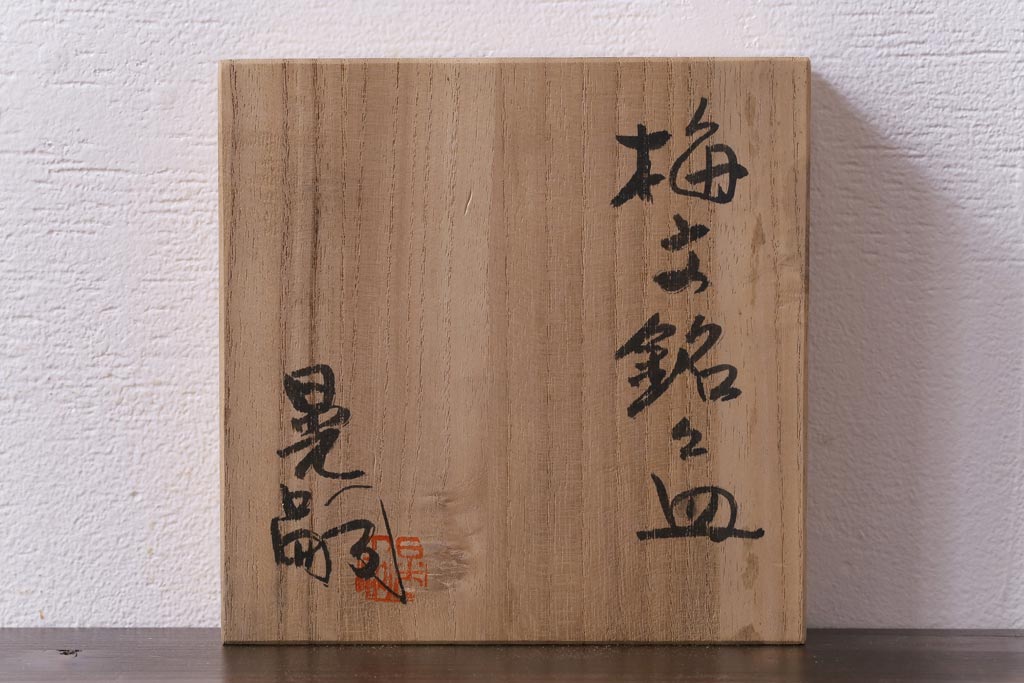 梅文銘々皿
晃嗣